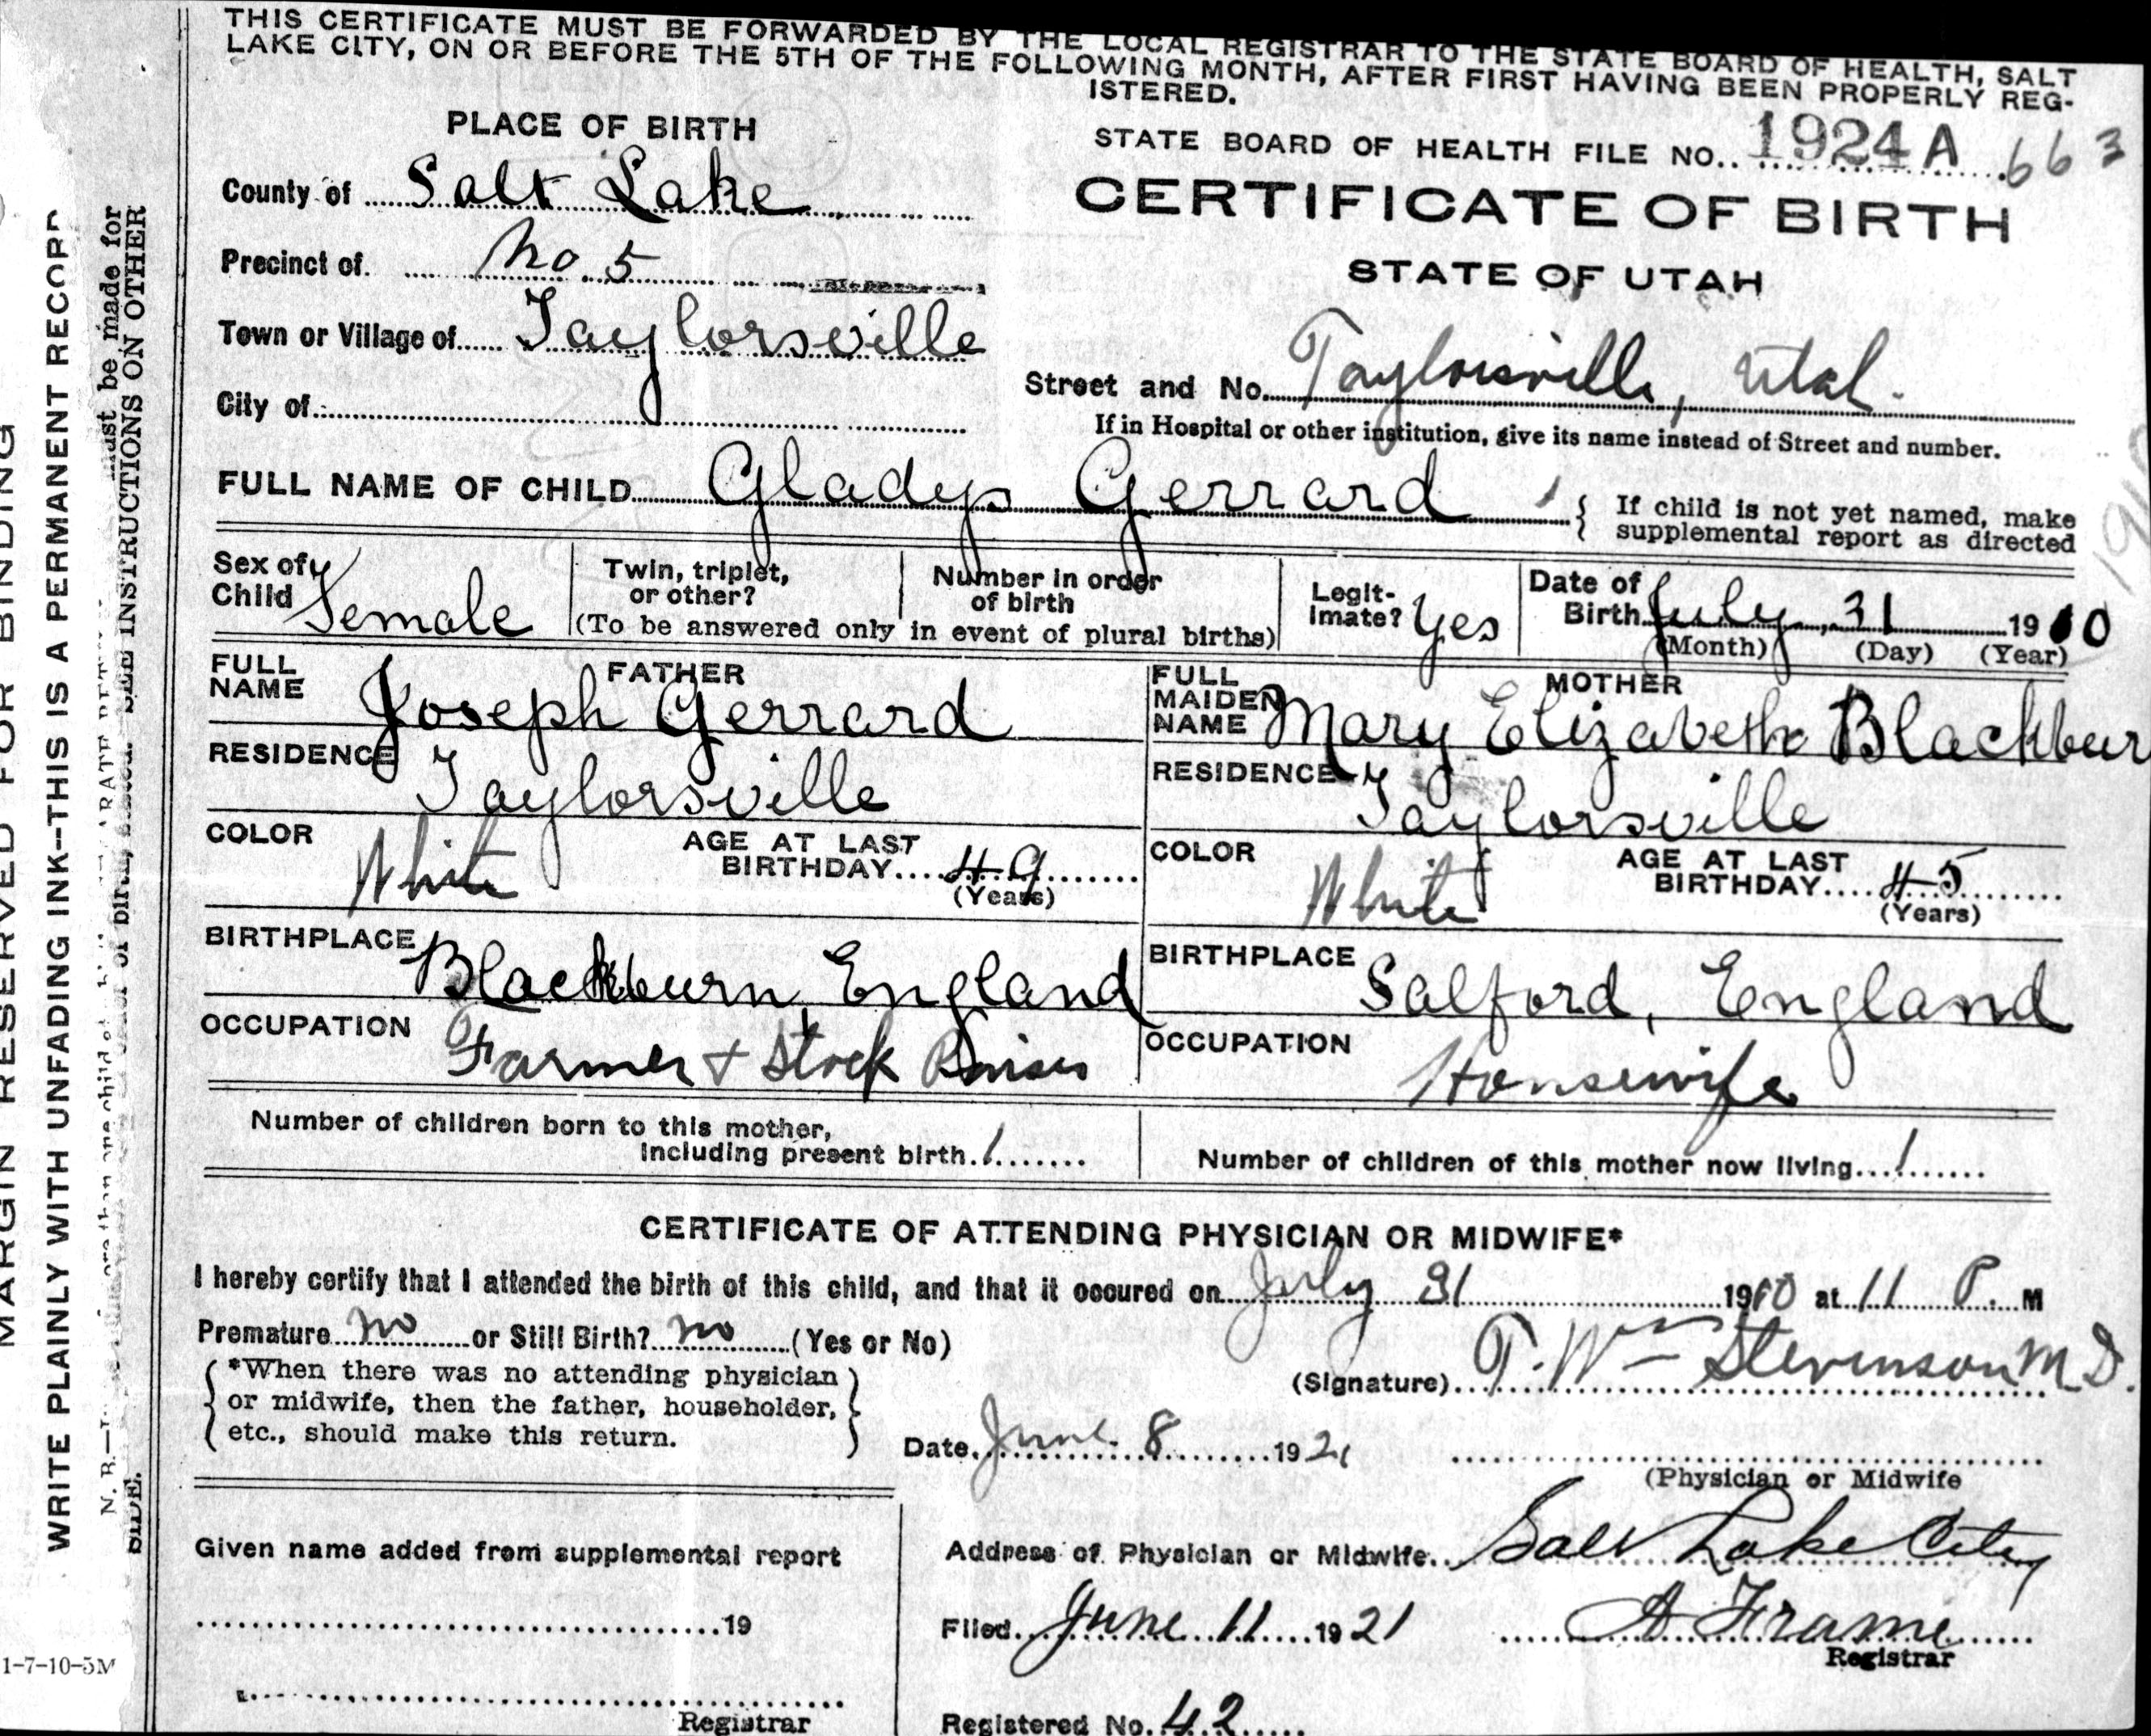 THIS CERTIFICATE MUST BE FORWARDED BY THE LOCAL REGISTRAR TO THE STATE BOARD OF HEALTH, SALT
LAKE CITY, ON OR BEFORE THE 5TH OF THE FOLLOWING MONTH, AFTER FIRST HAVING BEEN PROPERLY REG-
ISTERED.
PLACE OF BIRTH
STATE BOARD OF HEALTH FILE NO. 1924 A 663
County of Salt Lake
CERTIFICATE OF BIRTH
Precinct of No. 5
STATE OF UTAH
Town or Village of Taylorsville
Street and No. Taylorsville, Utah.
City of
If in Hospital or other institution, give its name instead of Street and number.
FULL NAME OF CHILD Gladys Gerrard
If child is not yet named, make
supplemental report as directed
Sex of Child Female
Twin, triplet, or other?
Number in order of birth
(To be answered only in event of plural births)
Legit-
imate? Yes
Date of
Birth July, 31 1910
(Month) (Day) (Year)
FATHER
FULL NAME Joseph Gerrard
RESIDENCE Taylorsville
COLOR White
AGE AT LAST
BIRTHDAY 49
(Years)
BIRTHPLACE Blackburn, England
OCCUPATION Farmer + Stock Raiser
MOTHER
FULL MAIDEN NAME Mary Elizabeth Blackbur
RESIDENCE Taylorsville
COLOR White
AGE AT LAST
BIRTHDAY 45
(Years)
BIRTHPLACE Salford, England
OCCUPATION Housewife
Number of children born to this mother,
including present birth. 1
Number of children of this mother now living 1
CERTIFICATE OF ATTENDING PHYSICIAN OR MIDWIFE*
I hereby certify that I attended the birth of this child, and that it occured on July 31 1910 at 11 P. M
Premature no or Still Birth? no (Yes or No)
*When there was no attending physician
or midwife, then the father, householder,
etc., should make this return.
(Signature) T. Wm Stevenson M.D.
Date June 8 1921
(Physician or Midwife
Given name added from supplemental report
Address of Physician or Midwife Salt Lake City
19
Filed June 11 1921
A Frame
Registrar
Registrar
Registered No. 42
MARGIN RESERVED FOR BINDING
WRITE PLAINLY WITH UNFADING INK—THIS IS A PERMANENT RECORD
N. B.—
must be made for
SEE INSTRUCTIONS ON OTHER
SIDE.
1-7-10-5M